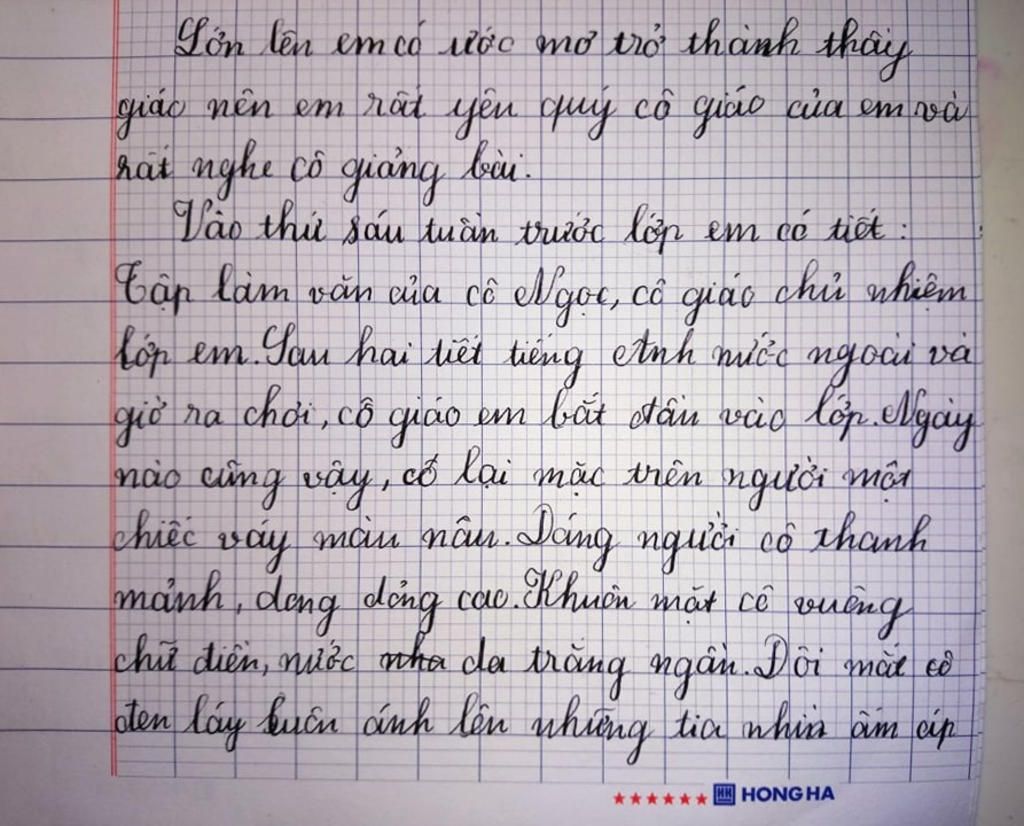 Lớn lên em có ước mơ trở thành thầy
giáo nên em rất yên quý cô giáo của em và
rất nghe cô giảng bài.
Vào thứ sáu tuần trước lớp em có tiết :
Tập làm văn của cô Ngọc, cô giáo chủ nhiệm
lớp em. Sau hai tiết tiếng Anh nước ngoài và
giờ ra chơi, cô giáo em bắt đầu vào lớp. Ngày
nào cũng vậy, cô lại mặc trên người một
chiếc váy màu nâu. Dáng người cô thanh
mảnh, dong dỏng cao. Khuôn mặt cô vuông
chữ điền, nước nha da trắng ngần. Đôi mắt cô
đen láy luôn ánh lên những tia nhìn ấm áp
★★★★★★ HH HONG HA